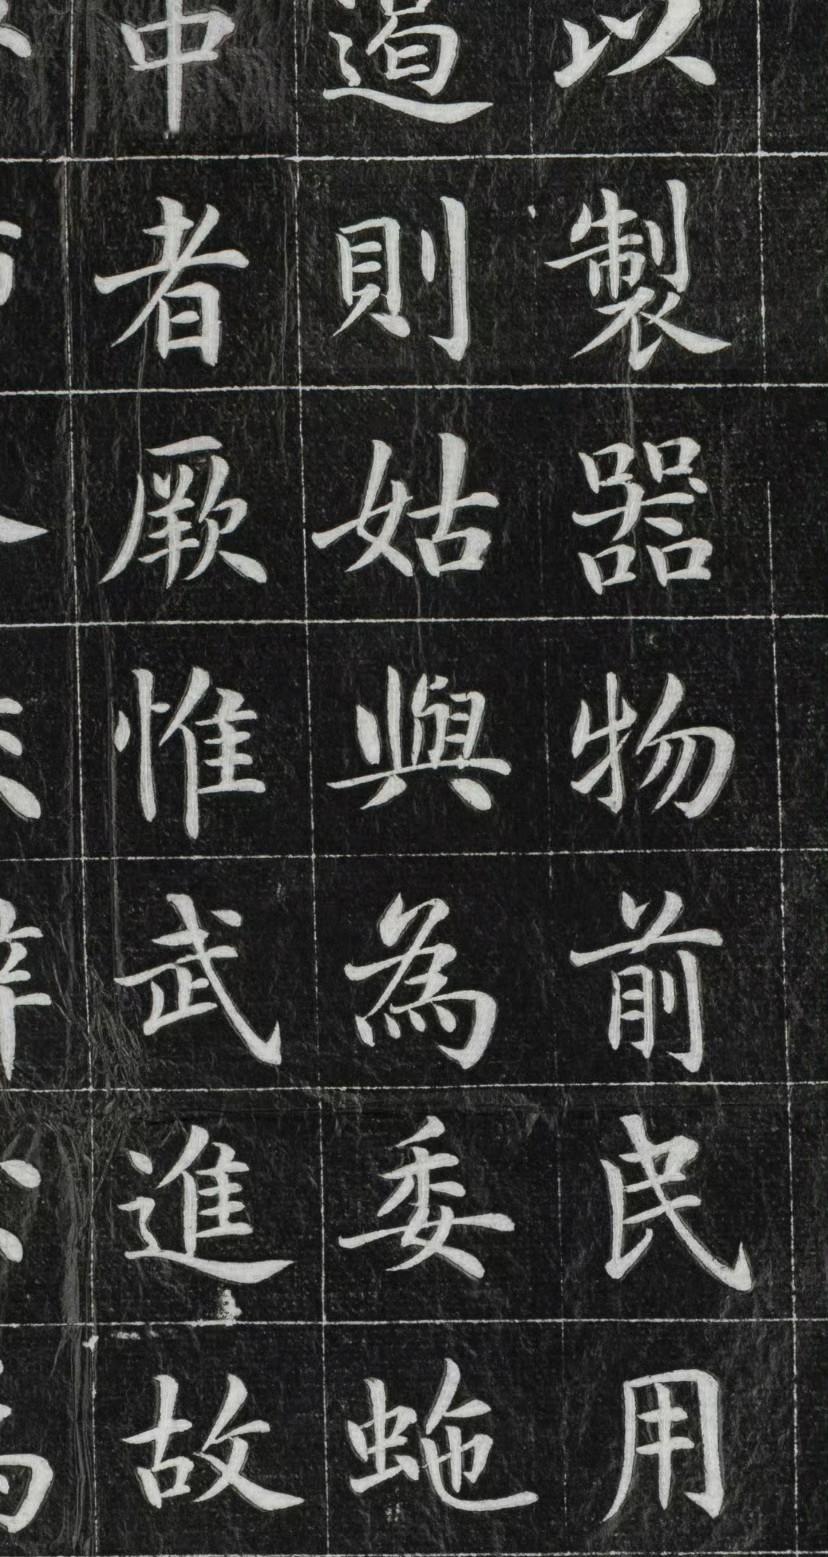 以製器物前民用
則姑與為委虵
中者厥惟武進故